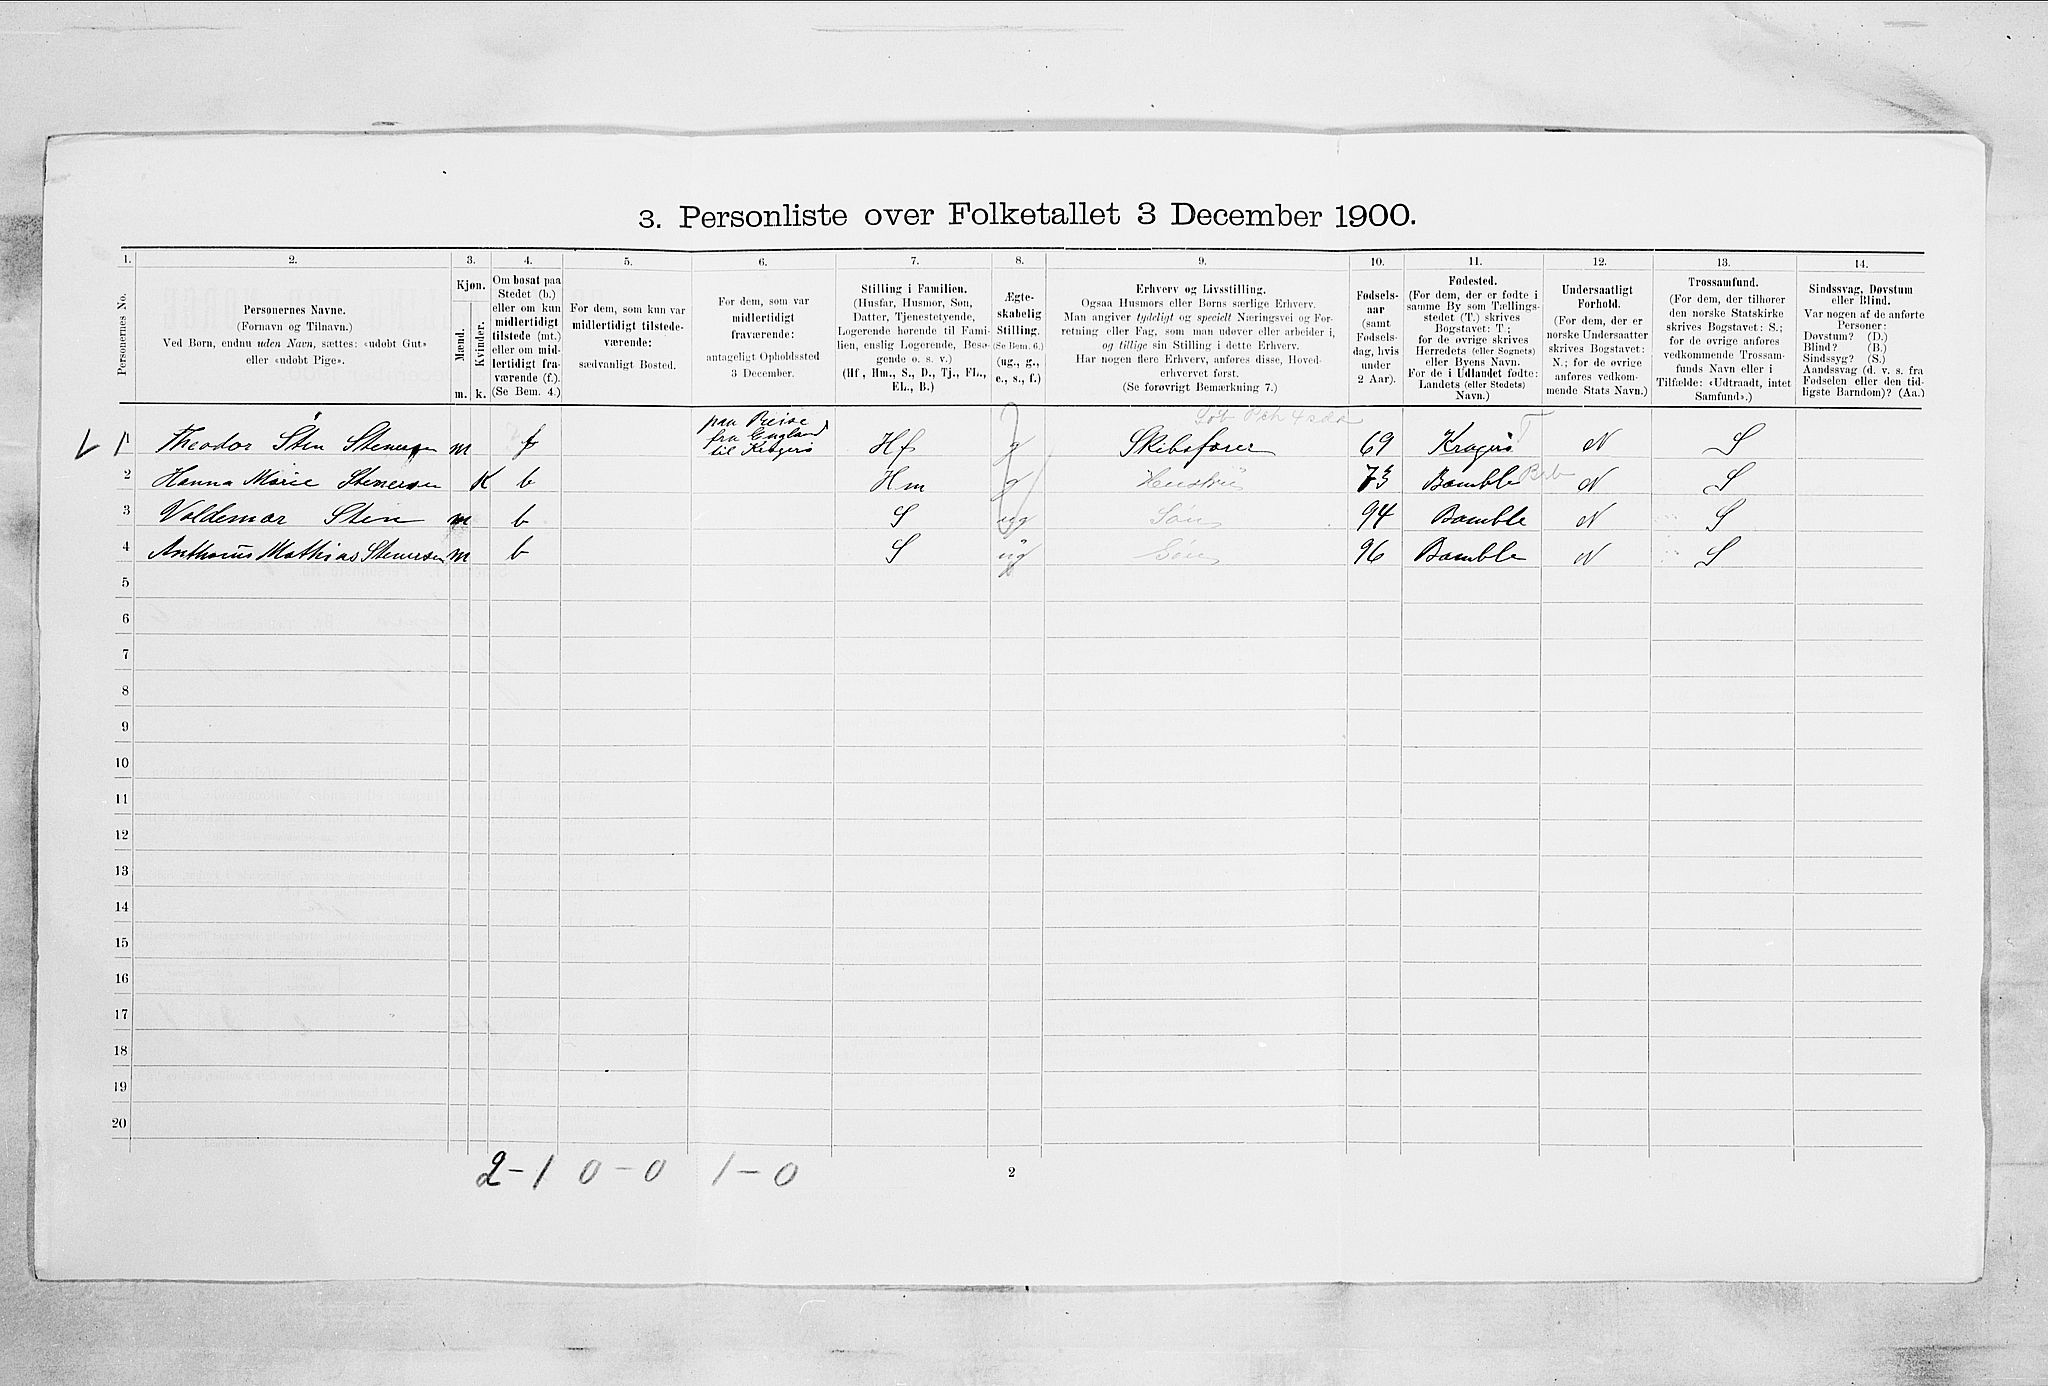 3. Personliste over Folketallet 3 December 1900.
1. 2. 3. 4. 5. 6. 7. 8. 9. 10. 11. 12. 13. 14.
Personernes No.
Personernes Navne.
(Fornavn og Tilnavn.)
Ved Børn, endnu uden Navn, sættes: «udøbt Gut»
eller «udøbt Pige».
Kjøn.
Mænd.
Kvinder.
m. k.
Om bosat paa
Stedet (b.)
eller om kun
midlertidigt
tilstede (mt.)
eller om mid-
lertidigt fra-
værende (f.).
(Se Bem. 4.)
For dem, som kun var
midlertidigt tilstede-
værende:
sædvanligt Bosted.
For dem, som var
midlertidigt
fraværende:
antageligt Opholdssted
3 December.
Stilling i Familien.
(Husfar, Husmor, Søn,
Datter, Tjenestetyende,
Logerende hørende til Fami-
lien, enslig Logerende, Besø-
gende o. s. v.)
(Hf., Hm., S., D., Tj., FL.,
EL., B.)
Ægte-
skabelig
Stilling.
(Se Bem. 6.)
(ug., g.,
e., s., f.)
Erhverv og Livsstilling.
Ogsaa Husmors eller Børns særlige Erhverv.
Man angiver tydeligt og specielt Næringsvei og For-
retning eller Fag, som man udøver eller arbeider i,
og tillige sin Stilling i dette Erhverv.
Har nogen flere Erhverv, anføres disse, Hoved-
erhvervet først.
(Se forøvrigt Bemærkning 7.)
Fødsels-
aar
(samt
Fødsels-
dag, hvis
under
2 Aar).
Fødested.
(For dem, der er fødte i
samme By som Tællings-
stedet (T.) skrives
Bogstavet: T.;
for de øvrige skrives
Herredets (eller Sognets)
eller Byens Navn.
For de i Udlandet fødte:
Landets (eller Stedets)
Navn.)
Undersaatligt
Forhold.
(For dem, der er
norske Undersaatter
skrives Bogstavet:
N.; for de øvrige
anføres vedkom-
mende Stats Navn.)
Trossamfund.
(For dem, der tilhører
den norske Statskirke
skrives Bogstavet: S.;
for de øvrige anføres
vedkommende Trossam-
funds Navn eller i
Tilfælde: «Udtraadt, intet
Samfund».)
Sindssvag, Døvstum
eller Blind.
Var nogen af de anførte
Personer:
Døvstum? (D.)
Blind? (B.)
Sindssyg? (S.)
Aandssvag (d. v. s. fra
Fødselen eller den tid-
ligste Barndom)? (Aa.)
1 Theodor Stin Stenersen m f paa Reise fra England til Kragerø Hf g Skibsfører 69 Kragerø T N S
2 Hanna Marie Stenersen K b Hm g Hustru 73 Bamble N S
3 Valdemar Stin m b S ug Søn 94 Bamble N S
4 Anthonius Mathias Stenersen m b S ug Søn 96 Bamble N S
5
6
7
8
9
10
11
12
13
14
15
16
17
18
19
20
2-1 0-0 1-0
2